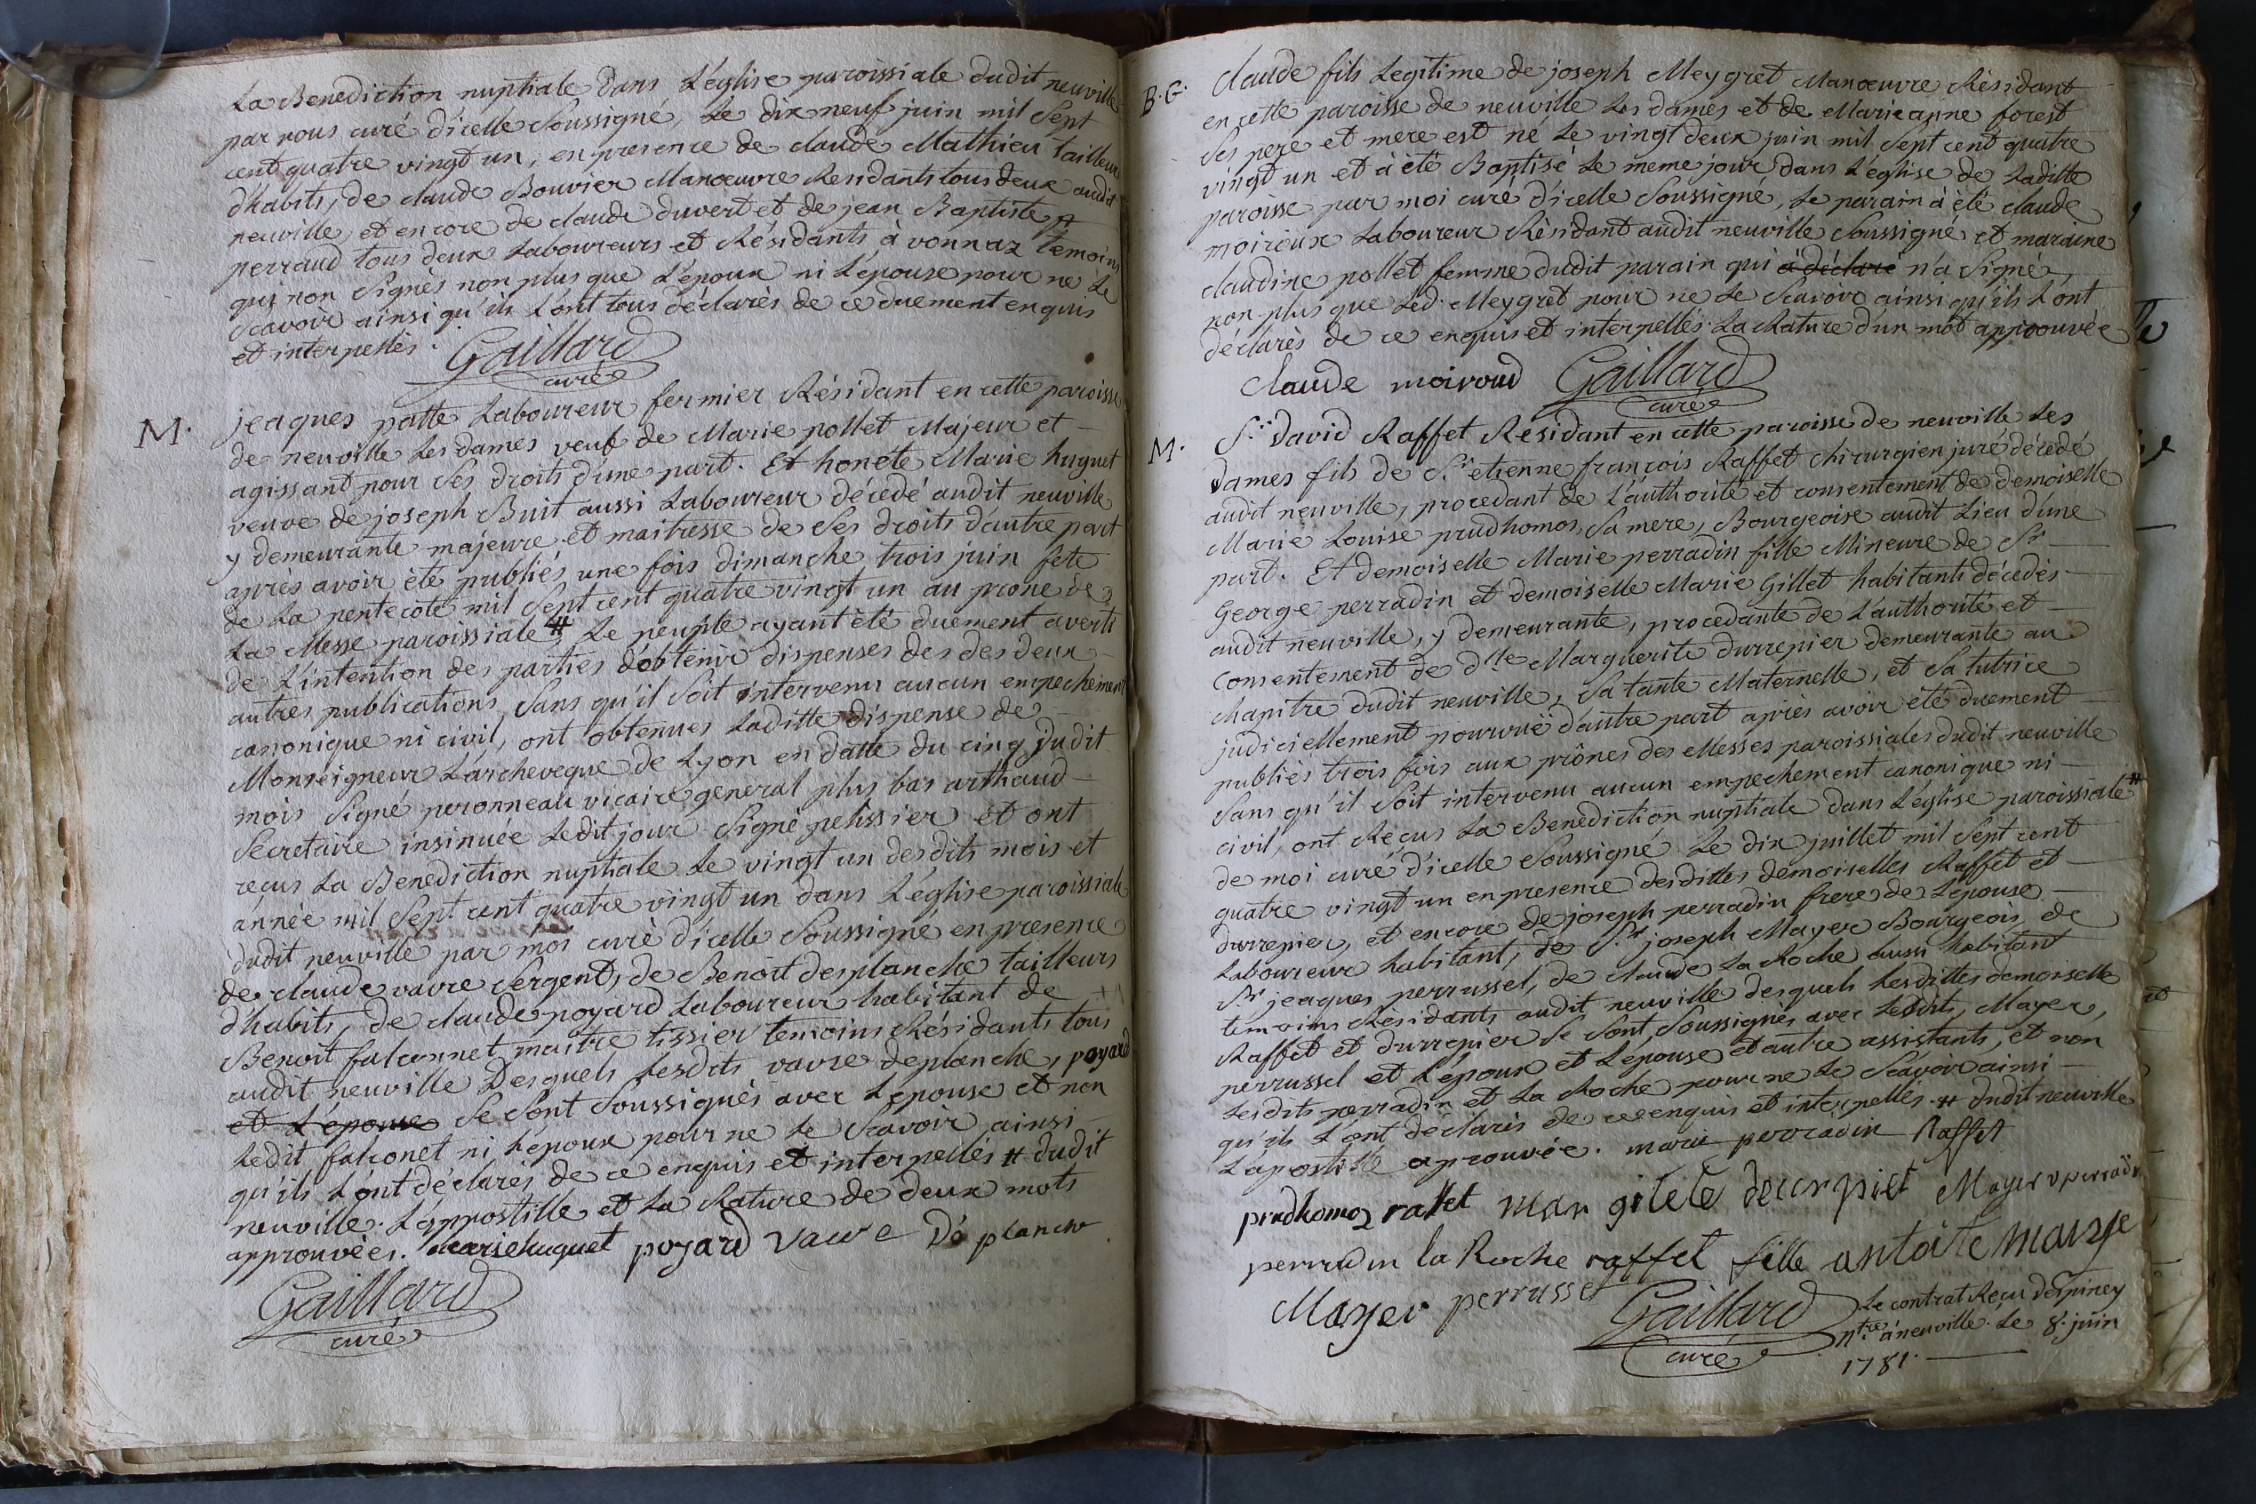 La Benediction nuptiale Dans L'église paroissiale dudit neuville
par nous curé d'icelle Soussigné, Le dix neuf juin mil Sept
cent quatre vingt un, en presence de claude Mathieu tailleur
d'habits, de claude Bouvier Manœuvre Residants tous deux audit
neuville, et encore de claude duvert et de jean Baptiste
perraud tous deux Laboureurs et Résidants à vonnaz temoins
qui non Signés non plus que L'epoux ni L'épouse pour ne Le
Scavoir ainsi qu'ils L'ont tous déclarés de ce duement enquis
et interpellés.
Gaillard
curé
M. jeaques patte Laboureur fermier Résidant en cette paroisse
de neuville Les dames veuf de Marie pollet Majeur et
agissant pour Ses droits d'une part. Et honete Marie huguet
veuve de joseph Buit aussi Laboureur décedé audit neuville
y demeurante majeure et maitresse de Ses droits d'autre part
après avoir été publiés une fois dimanche trois juin fete
de La pentecote mil Sept cent quatre vingt un au prone de
La Messe paroissiale # Le peuple ayant été duement averti
de L'intention des parties d'obtenir dispenses des des deux
autres publications Sans qu'il Soit intervenu aucun empechement
canonique ni civil, ont obtenues Laditte dispense de
Monseigneur L'archeveque de Lyon en datte du cinq dudit
mois Signé peronneau vicaire general plus bas arthaud
Secretaire insinuée Ledit jour Signé pelissier et ont
reçus La Benediction nuptiale Le vingt un desdits mois et
année mil Sept cent quatre vingt un dans L'église paroissiale
dudit neuville par moi curé d'icelle Soussigné en presence
de claude vavre Sergent, de Benoit desplanche tailleurs
d'habits, de claude poyard Laboureur habitant de
Benoit falconnet maitre tissier temoins Résidants tous
audit neuville Desquels Lesdits vavre deplanche, poyard
et L'épouse Se Sont Soussignés avec L'epouse et non
Ledit falconet ni L'époux pour ne Le Scavoir ainsi
qu'ils L'ont déclarés de ce enquis et interpellés # dudit
neuville. L'appostille et La Rature de deux mots
approuvées. marie huguet poyard vavre Dé planche
Gaillard
curé
B. G. Claude fils Legitime de joseph Meygret Manœuvre Résidant
en cette paroisse de neuville Les dames et de Marie anne forest
Ses pere et mere est né Le vingt deux juin mil Sept cent quatre
vingt un et à été Baptisé Le meme jour Dans L'église de Laditte
paroisse par moi curé d'icelle Soussigné, Le parain à été claude
moiroux Laboureur Résidant audit neuville Soussigné et maraine
claudine pollet femme dudit parain qui à déclaré n'a Signé
non plus que Led. Meygret pour ne Le Scavoir ainsi qu'ils L'ont
déclarés de ce enquis et interpellés. La Rature d'un mot approuvée
Claude moiroud Gaillard
curé
M. S.r David Raffet Residant en cette paroisse de neuville Les
Dames fils de S.r etienne françois Raffet chirurgien juré décedé
audit neuville, procedant de L'authorité et consentement de demoiselle
Marie Louise prudhomos, Sa mere, Bourgeoise audit Lieu d'une
part. Et demoiselle Marie perradin fille Mineure de S.r
George perradin et demoiselle Marie Gillet habitants décedés
audit neuville, y demeurante, procedante de L'authorité et
consentement de d.lle Marguerite durrepier demeurante au
chapitre dudit neuville, Sa tante Maternelle, et Sa tutrice
judiciellement pourvuë d'autre part après avoir été duement
publiés trois fois aux prônes des Messes paroissiales dudit neuville
Sans qu'il Soit intervenu aucun empechement canonique ni
civil, ont Reçus La Benediction nuptiale dans L'église paroissiale #
de moi curé d'icelle Soussigné Le dix juillet mil Sept cent
quatre vingt un en presence desdittes demoiselles Raffet et
durrepier, et encore de joseph perradin frere de L'epouse
Laboureur habitant, de S.r joseph Mayer Bourgeois de
S.r jeaques perrussel, de claude La Roche aussi habitant
temoins Résidants audit neuville desquels Lesdittes demoiselle
Raffet et durrepier Se Sont Soussignés avec Lesdits Mayer,
perrussel et L'époux et L'épouse et autre assistants, et non
Lesdits perradin et La Roche pour ne Le Scavoir ainsi
qu'ils L'ont déclarés de ce enquis et interpellés # dudit neuville
L'apostille aprouvée. marie perradin Raffet
prudhomoz raffet Mayer
perradin la Roche raffet fille
Mayer perrussel Gaillard
curé
Le contrat Reçu d'Espiney
n.tre à neuville Le 8. juin
1781.